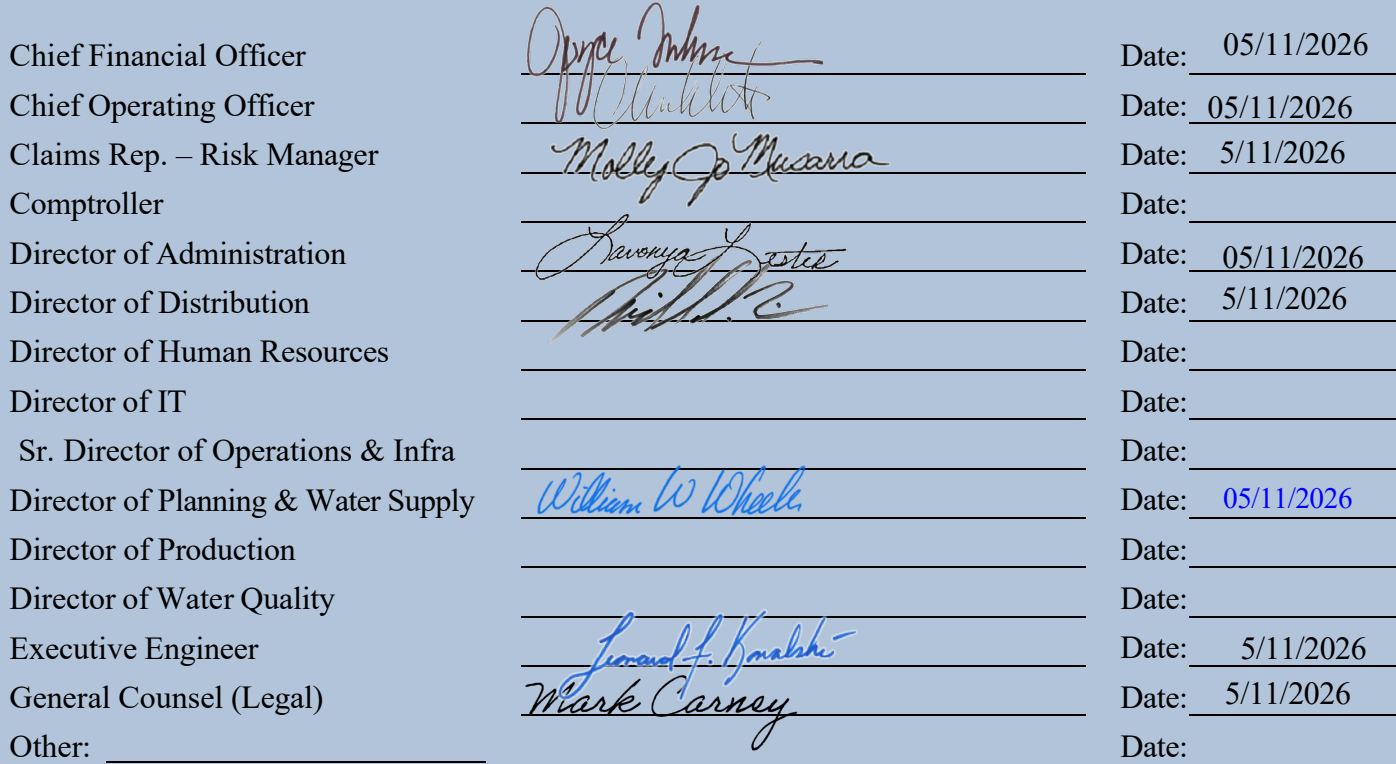 Chief Financial Officer Joyce Date: 05/11/2026
Chief Operating Officer Date: 05/11/2026
Claims Rep. – Risk Manager Molly Jo Musarra Date: 5/11/2026
Comptroller Date:
Director of Administration Lavonya Lester Date: 05/11/2026
Director of Distribution Date: 5/11/2026
Director of Human Resources Date:
Director of IT Date:
Sr. Director of Operations & Infra Date:
Director of Planning & Water Supply William W Wheeler Date: 05/11/2026
Director of Production Date:
Director of Water Quality Date:
Executive Engineer Leonard F. Kowalski Date: 5/11/2026
General Counsel (Legal) Mark Carney Date: 5/11/2026
Other: Date: